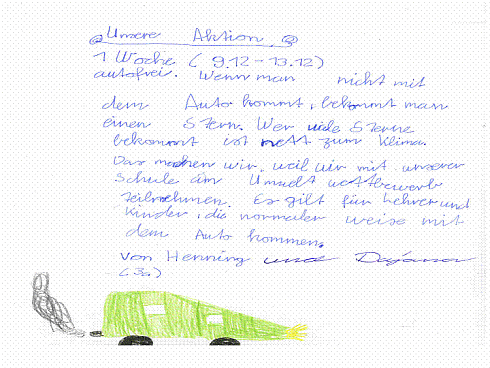 Unsere Aktion
1 Woche (9.12 - 13.12)
autofrei. Wenn man nicht mit
dem Auto kommt, bekommt man
einen Stern. Wer viele Sterne
bekommt ist nett zum Klima.
Das machen wir, weil wir mit unserer
Schule am Umwelt wettbewerb
teilnehmen. Es gilt für Lehrer und
Kinder, die normaler weise mit
dem Auto kommen.
von Henning und Dajana
(3a)